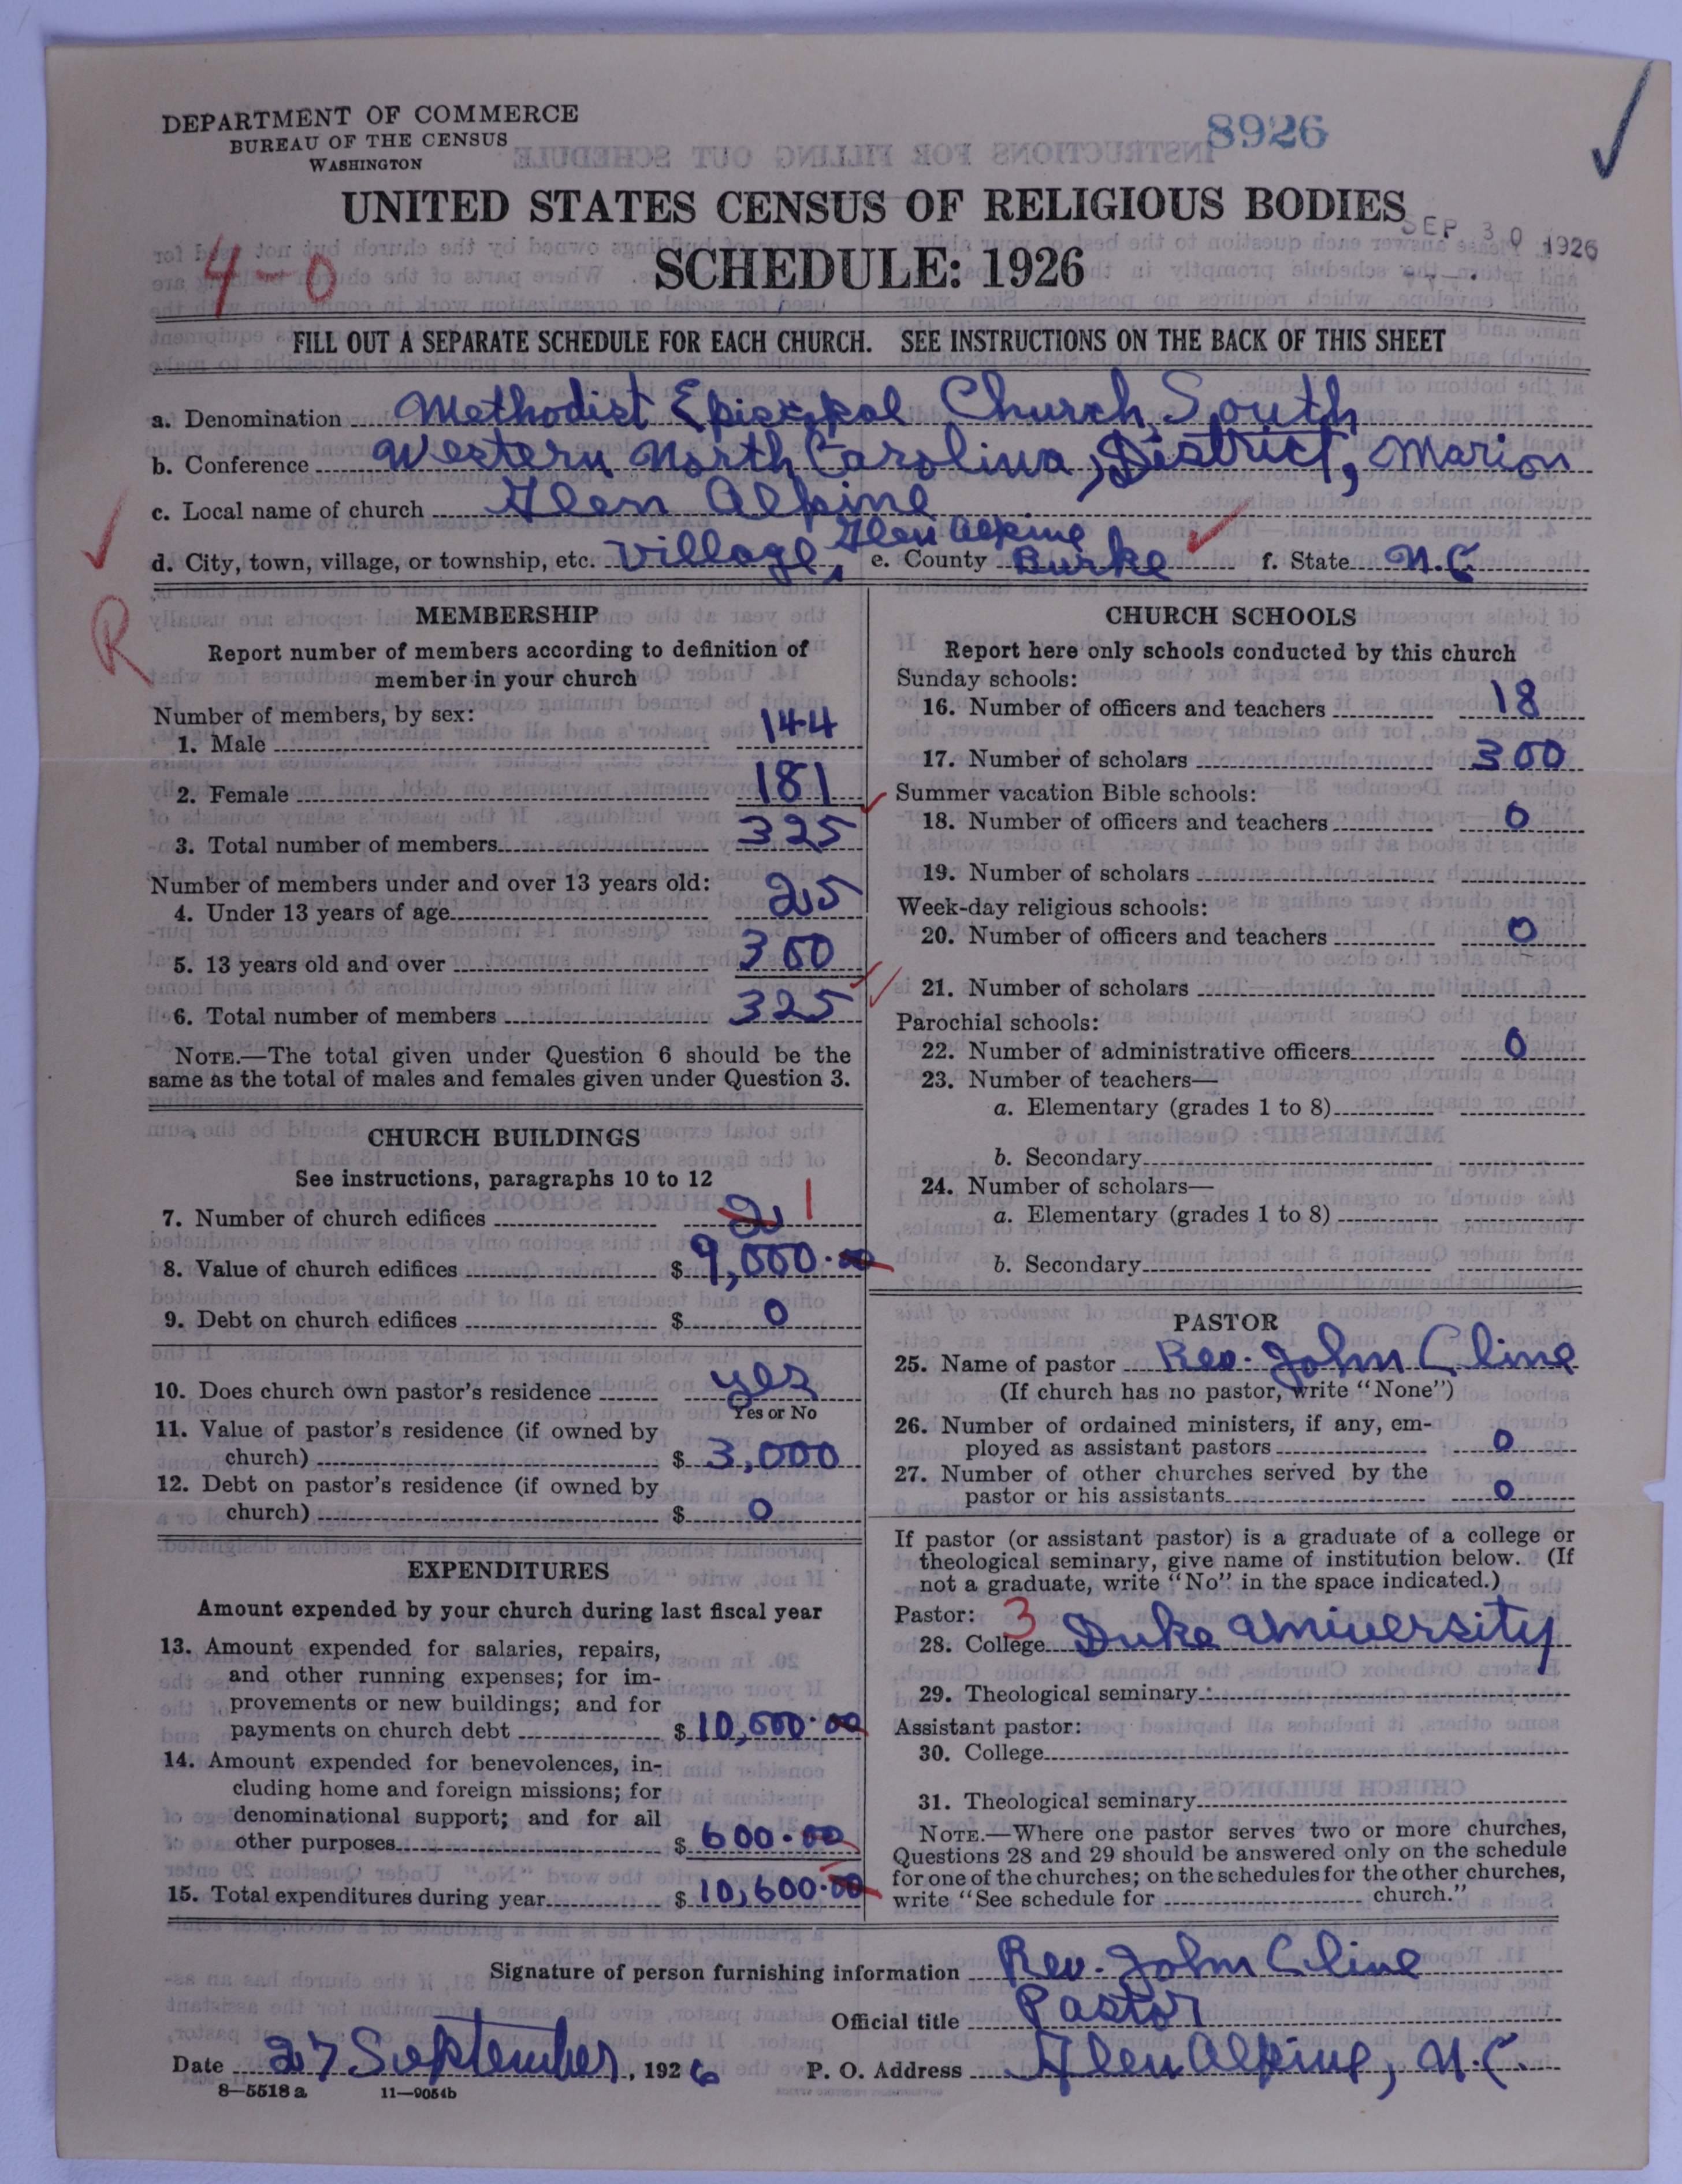 DEPARTMENT OF COMMERCE
BUREAU OF THE CENSUS
WASHINGTON
8926
UNITED STATES CENSUS OF RELIGIOUS BODIES
SEP 30 1926
4-0
SCHEDULE: 1926
FILL OUT A SEPARATE SCHEDULE FOR EACH CHURCH. SEE INSTRUCTIONS ON THE BACK OF THIS SHEET
a. Denomination Methodist Episcopal Church, South
b. Conference Western North Carolina, District, Marion
c. Local name of church Glen Alpine
d. City, town, village, or township, etc. Village, Glen Alpine e. County Burke f. State N.C
R
MEMBERSHIP
Report number of members according to definition of
member in your church
Number of members, by sex:
1. Male 144
2. Female 181
3. Total number of members 325
Number of members under and over 13 years old:
4. Under 13 years of age 25
5. 13 years old and over 300
6. Total number of members 325
NOTE.—The total given under Question 6 should be the
same as the total of males and females given under Question 3.
CHURCH BUILDINGS
See instructions, paragraphs 10 to 12
7. Number of church edifices 2 1
8. Value of church edifices $ 9,000.00
9. Debt on church edifices $ 0
10. Does church own pastor's residence yes
Yes or No
11. Value of pastor's residence (if owned by
church) $ 3,000
12. Debt on pastor's residence (if owned by
church) $ 0
EXPENDITURES
Amount expended by your church during last fiscal year
13. Amount expended for salaries, repairs,
and other running expenses; for im-
provements or new buildings; and for
payments on church debt $ 10,000.00
14. Amount expended for benevolences, in-
cluding home and foreign missions; for
denominational support; and for all
other purposes $ 600.00
15. Total expenditures during year $ 10,600.00
CHURCH SCHOOLS
Report here only schools conducted by this church
Sunday schools:
16. Number of officers and teachers 18
17. Number of scholars 300
Summer vacation Bible schools:
18. Number of officers and teachers 0
19. Number of scholars
Week-day religious schools:
20. Number of officers and teachers 0
21. Number of scholars
Parochial schools:
22. Number of administrative officers 0
23. Number of teachers—
a. Elementary (grades 1 to 8)
b. Secondary
24. Number of scholars—
a. Elementary (grades 1 to 8)
b. Secondary
PASTOR
25. Name of pastor Rev. John Cline
(If church has no pastor, write "None")
26. Number of ordained ministers, if any, em-
ployed as assistant pastors 0
27. Number of other churches served by the
pastor or his assistants 0
If pastor (or assistant pastor) is a graduate of a college or
theological seminary, give name of institution below. (If
not a graduate, write "No" in the space indicated.)
Pastor: 3
28. College Duke University
29. Theological seminary
Assistant pastor:
30. College
31. Theological seminary
NOTE.—Where one pastor serves two or more churches,
Questions 28 and 29 should be answered only on the schedule
for one of the churches; on the schedules for the other churches,
write "See schedule for church."
Signature of person furnishing information Rev. John Cline
Official title Pastor
Date 27 September, 1926 P. O. Address Glen Alpine, N.C.
8—5518 a 11—9054b